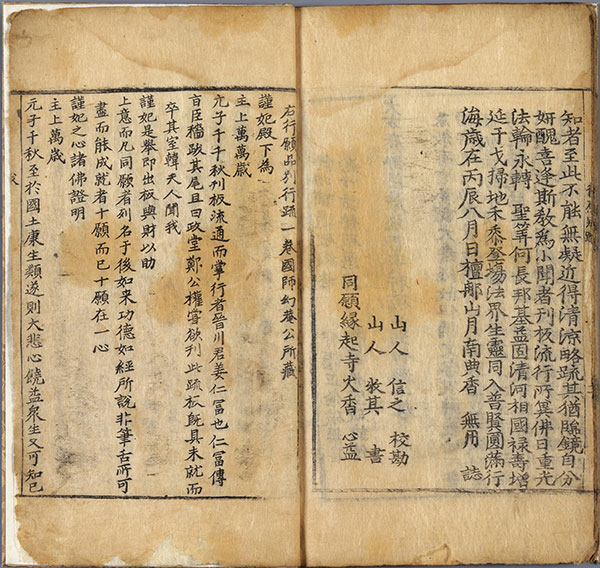 知者至此不能無疑近得清涼略疏其猶臨鏡自分
妍醜喜逢斯教爲小聞者刊板流行所冀佛日重光
法輪永轉 聖筭何長邦基益固清河相國祿壽增
延干戈掃地禾黍登場法界生靈同入普賢圓滿行
海歲在丙辰八月日檀那山月南典香 無用 誌
山人 信之 校勘
山人 敎其 書
同願緣起寺火香 心益
右行願品別行疏一卷國師幻菴公所藏
謹妃殿下為
主上萬萬歲
元子千千秋刊板流通而掌行者晉川君姜仁冨也仁冨傳
旨臣穡跋其尾且曰政堂鄭公權嘗欲刊此疏板旣具未就而
卒其室韓夫人聞我
謹妃是舉即出板與財以助
上意而凡同願者列名于後如来功德如經所說非筆舌所可
盡而能成就者十願而已十願在一心
謹妃之心諸佛證明
主上萬歲
元子千秋至於國土康生類遂則大悲心饒益衆生又可知已